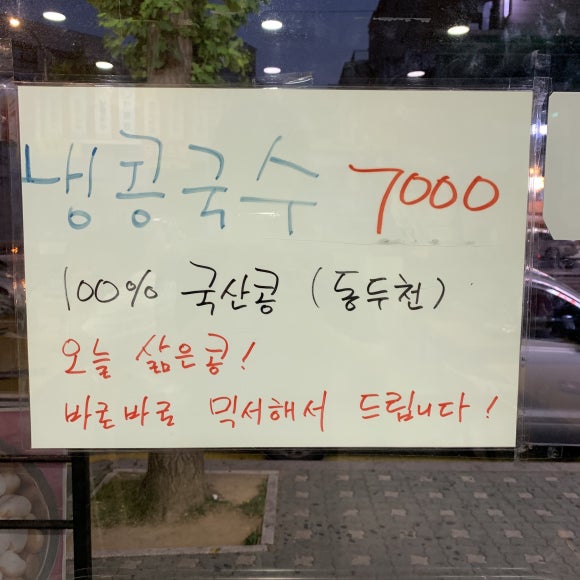 냉콩국수 7000
100% 국산콩 (동두천)
오늘 삶은콩!
바로바로 믹서해서 드립니다!